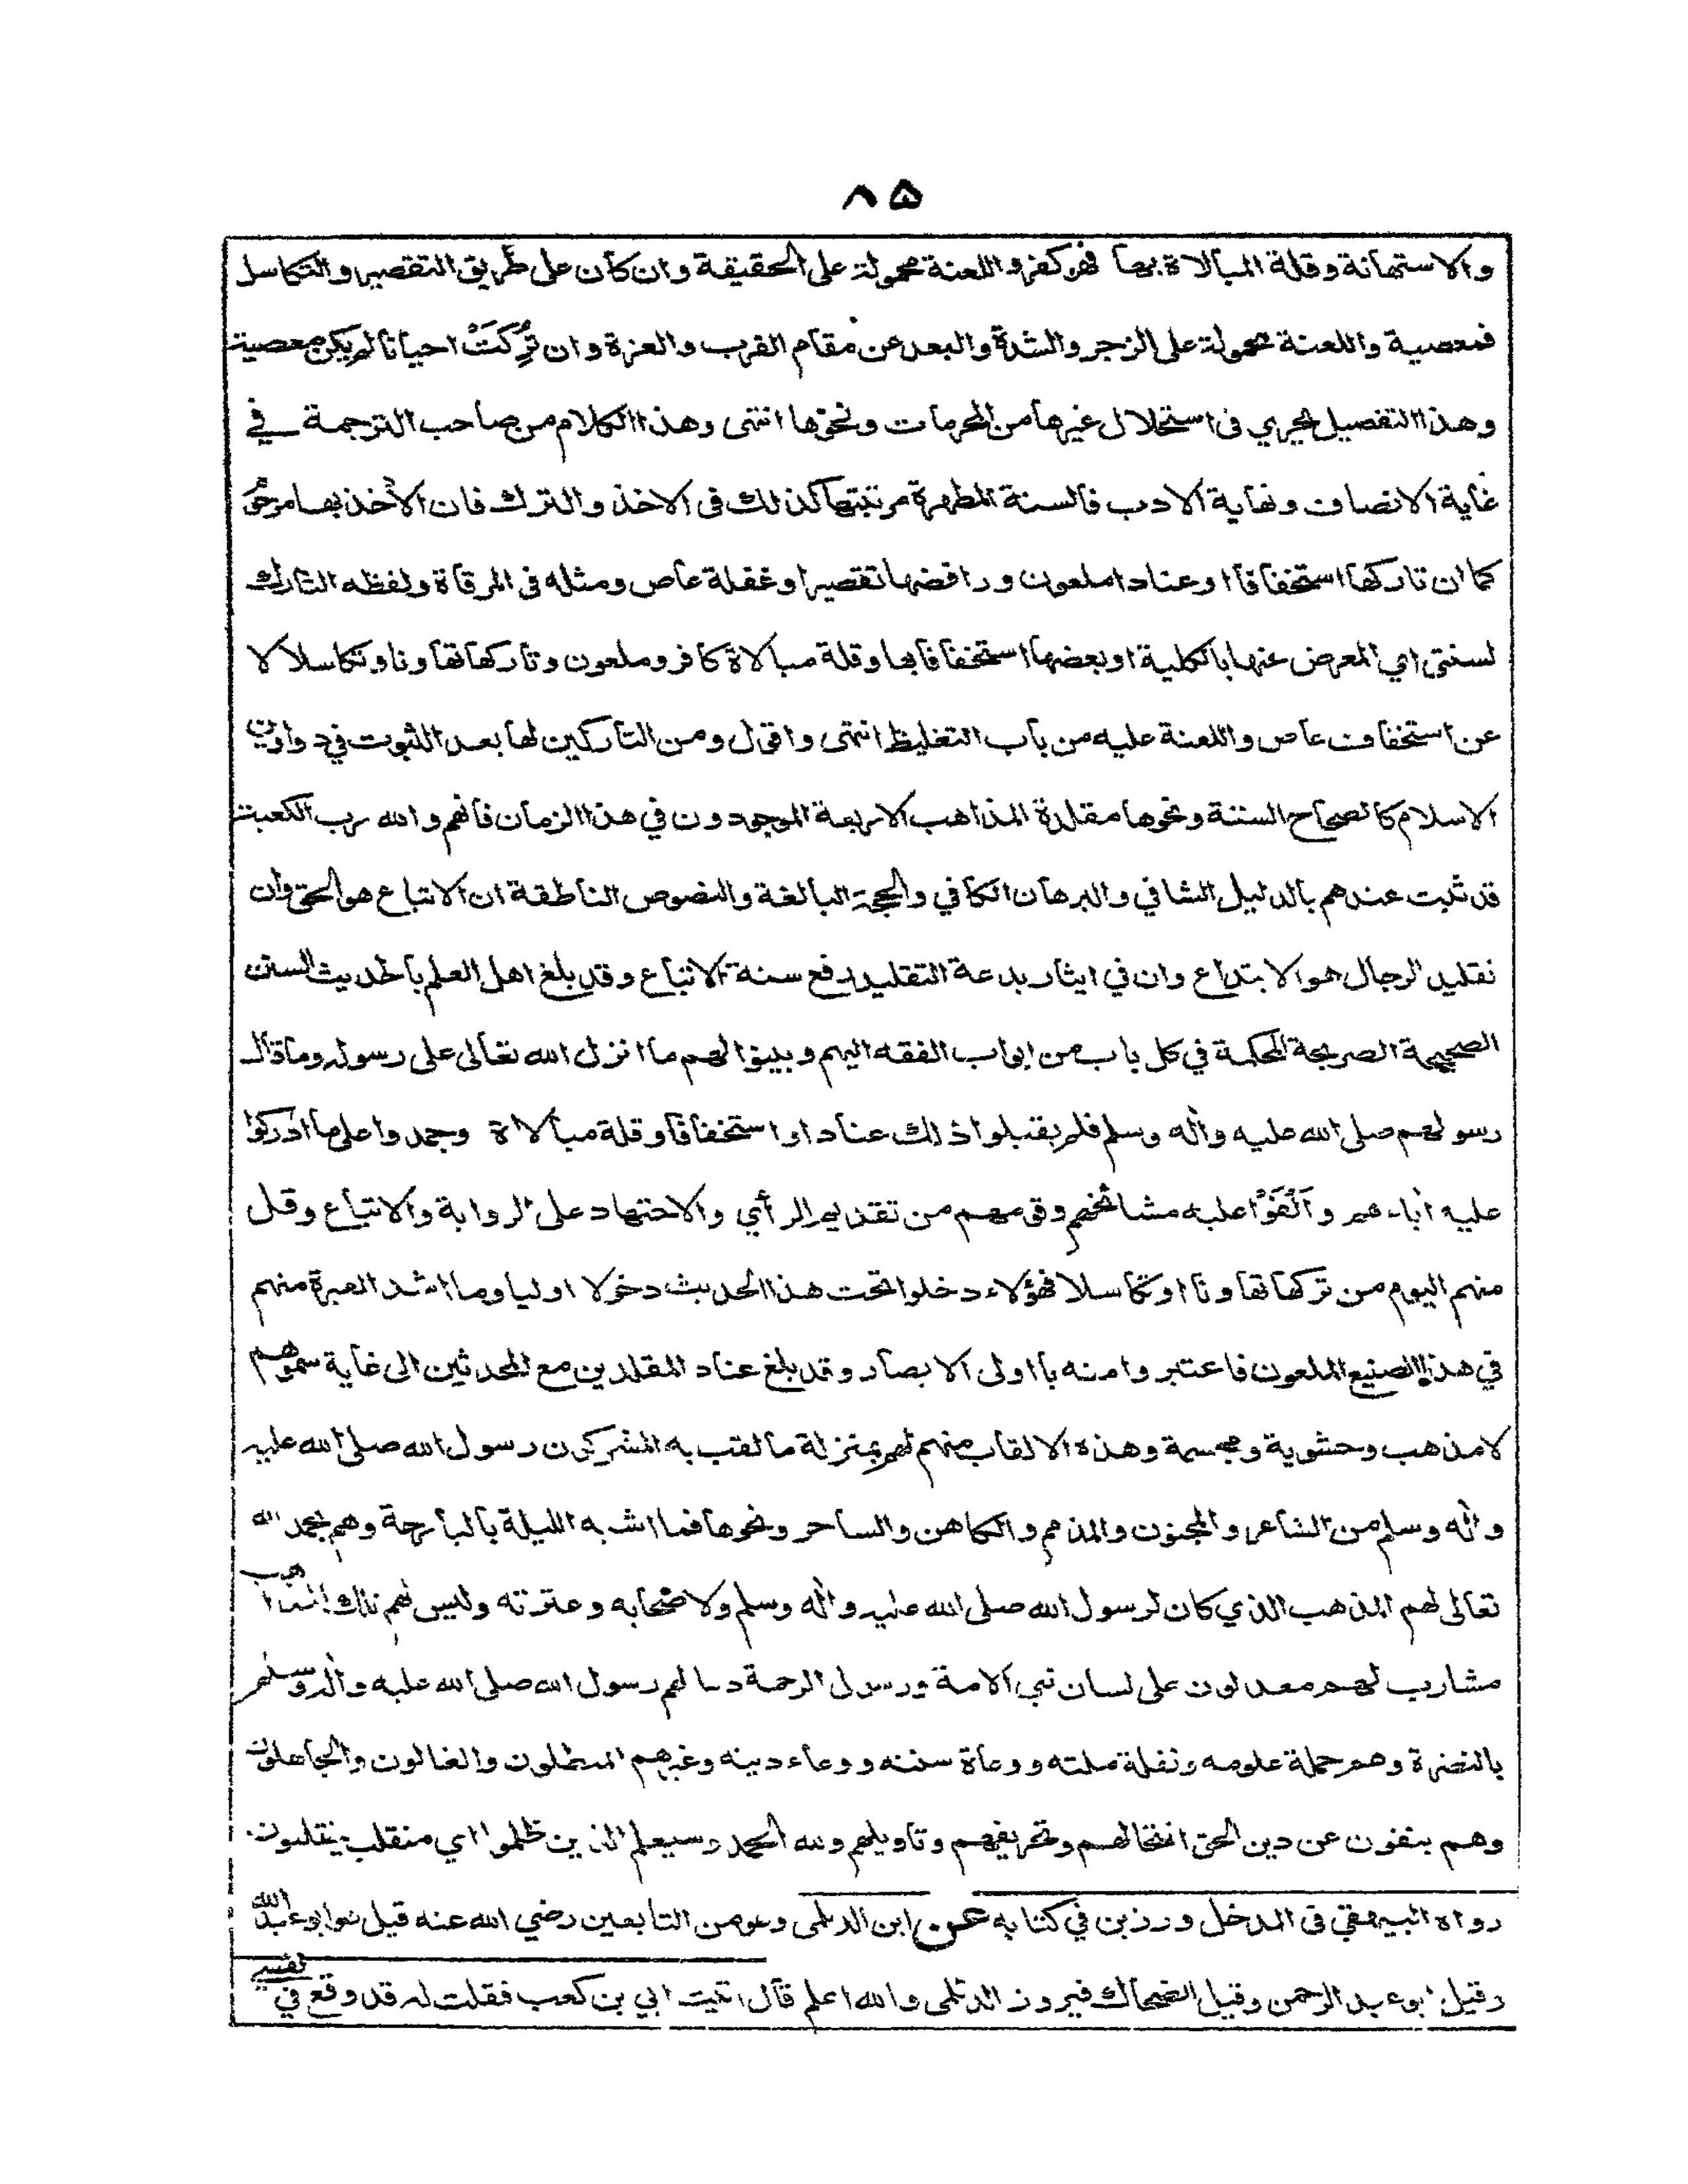 ٨٥
والاستهانة وقلة المبالاة بها فهو كفر واللعنة محمولة على الحقيقة وان كان على طريق التقصير والتكاسل
فمعصية واللعنة محمولة على الزجر والشدة والبعد عن مقام القرب والعزة وان تُرِكَتْ احيانا لم يكن معصية
وهذا التفصيل يجري في استحلال غيرها من المحرمات ونحوها انتهى وهذا الكلام من صاحب الترجمة في
غاية الانصاف ونهاية الادب فالسنة المطهرة مرتبتها كذلك في الاخذ والترك فان الآخذ بها مرحُو
كما ان تاركها استخفافا او عنادا ملعون ورافضها تقصيرا وغفلة عاص ومثله في المرقاة ولفظه التارك
لسنتي اي المعرض عنها بالكلية او بعضها استخفافا بها وقلة مبالاة كافر وملعون وتاركها تهاونا وتكاسلا لا
عن استخفاف عاص واللعنة عليه من باب التغليظ انتهى واقول ومن التاركين لها بعد الثبوت في دواوين
الاسلام كالصحاح الستة ونحوها مقلدة المذاهب الاربعة الموجودون في هذا الزمان فانهم والله رب الكعبة
قد ثبت عندهم بالدليل الشافي والبرهان الكافي والحجة البالغة والنصوص الناطقة ان الاتباع هو الحق وان
تقليد الرجال هو الابتداع وان في ايثار بدعة التقليد رفع سنة الاتباع وقد بلغ اهل العلم بالحديث السنن
الصحيحة الصريحة المحكمة في كل باب من ابواب الفقه اليهم وبينوا لهم ما انزل الله تعالى على رسوله وما قال
رسولهم صلى الله عليه وآله وسلم فلم يقبلوا ذلك عنادا او استخفافا وقلة مبالاة وجمدوا على ما ادركوا
عليه آباءهم وَأَلْفَوْا عليه مشائخهم وقومهم من تقديم الرأي والاجتهاد على الرواية والاتباع وقل
منهم اليوم من تركها تهاونا او تكاسلا فهؤلاء دخلوا تحت هذا الحديث دخولا اوليا وما اشد العبرة منهم
في هذا الصنيع الملعون فاعتبروا منه يا اولى الابصار وقد بلغ عناد المقلدين مع المحدثين الى غاية سموهم
لامذهب وحشوية ومجسمة وهذه الالقاب منهم لهم بمنزلة ما لقب به المشركون رسول الله صلى الله عليه
وآله وسلم من الشاعر والمجنون والمذمم والكاهن والساحر ونحوها فما اشبه الليلة بالبارحة وهم بحمد الله
تعالى لهم المذهب الذي كان لرسول الله صلى الله عليه وآله وسلم ولاصحابه وعترته وليس لهم تلك المذاهب
مشارب لهم معدلون على لسان نبي الامة ورسول الرحمة دعا لهم رسول الله صلى الله عليه وآله وسلم
بالنضرة وهم حملة علومه ونقلة ملته ووعاة سننه ووعاء دينه وغيرهم المبطلون والغالون والجاهلون
وهم ينفون عن دين الحق انتحالهم وتحريفهم وتاويلهم ولله الحمد وسيعلم الذين ظلموا اي منقلب ينقلبون.
رواه البيهقي في المدخل ورزين في كتابه عن ابن الديلمي وهو من التابعين رضي الله عنه قيل هو ابو عبد الله
وقيل ابو عبد الرحمن وقيل الضحاك فيروز الديلمى والله اعلم قال اتيت ابي بن كعب فقلت له قد وقع في نفسي